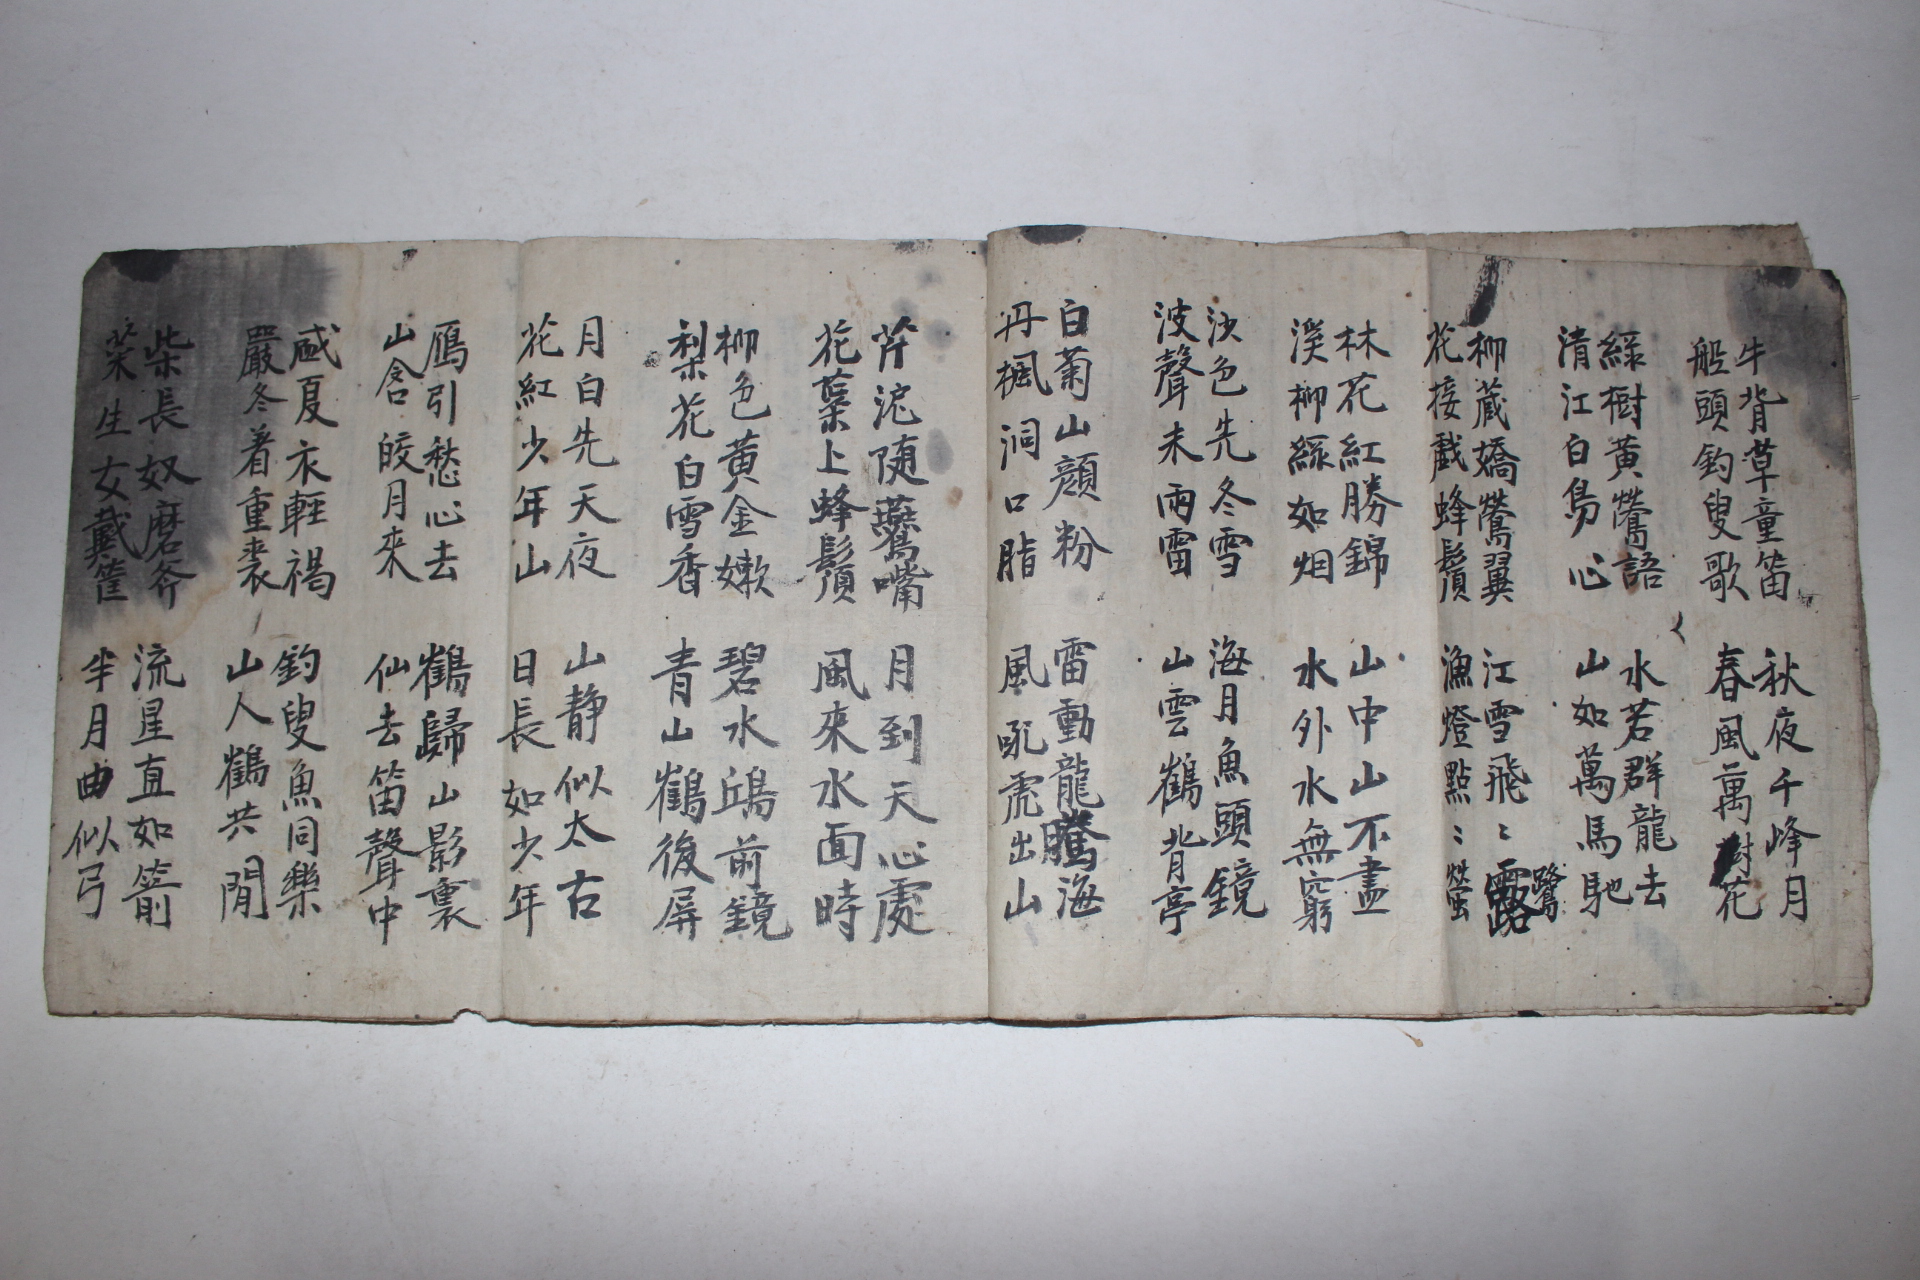 牛背草童笛 秋夜千峰月
船頭釣叟歌 春風萬樹花
綠樹黃鶯語 水若群龍去
清江白鳥心 山如萬馬馳
柳藏嬌鶯翼 江雪飛〻露鷺
花接戱蜂鬚 漁燈點〻螢
林花紅勝錦 山中山不盡
溪柳綠如烟 水外水無窮
沙色先冬雪 海月魚頭鏡
波聲未雨雷 山雲鶴背亭
白菊山顔粉 雷動龍騰海
丹楓洞口脂 風吼虎出山
芹泥隨鷰嘴 月到天心處
花蘂上蜂鬚 風來水面時
柳色黃金嫩 碧水鷗前鏡
梨花白雪香 青山鶴後屏
月白先天夜 山静似太古
花紅少年山 日長如少年
鴈引愁心去 鶴歸山影裏
山含皎月來 仙去笛聲中
盛夏衣輕褐 釣叟魚同樂
嚴冬着重裘 山人鶴共閒
柴長奴磨斧 流星直如箭
菜生女戴筐 半月曲似弓